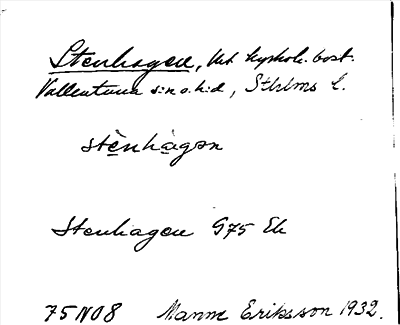 Stenhagen, Utt kyrkoh. bost.
Vallentuna sn o. hd, Sthlms l.
stènhàgən
Stenhagen G75 Ek
75N08 Manne Eriksson 1932.